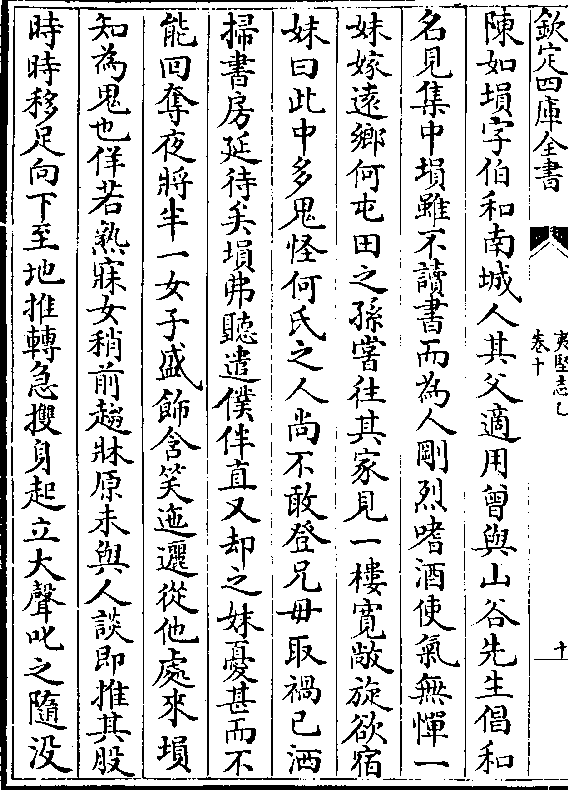 欽定四庫全書
夷堅志乙
卷十
十
陳如塤字伯和南城人其父適用曾與山谷先生倡和
名見集中塤雖不讀書而為人剛烈嗜酒使氣無憚一
妹嫁遠鄉何屯田之孫嘗往其家見一樓寛敞旋欲宿
妹曰此中多鬼怪何氏之人尚不敢登兄毋取禍已洒
掃書房延待矣塤弗聽遣僕伴直又却之妹憂甚而不
能回奪夜將半一女子盛飾含笑迤邐從他處來塤
知為鬼也佯若熟寐女稍前趨牀原未與人談即推其股
時時移足向下至地推轉急摱身起立大聲叱之隨没